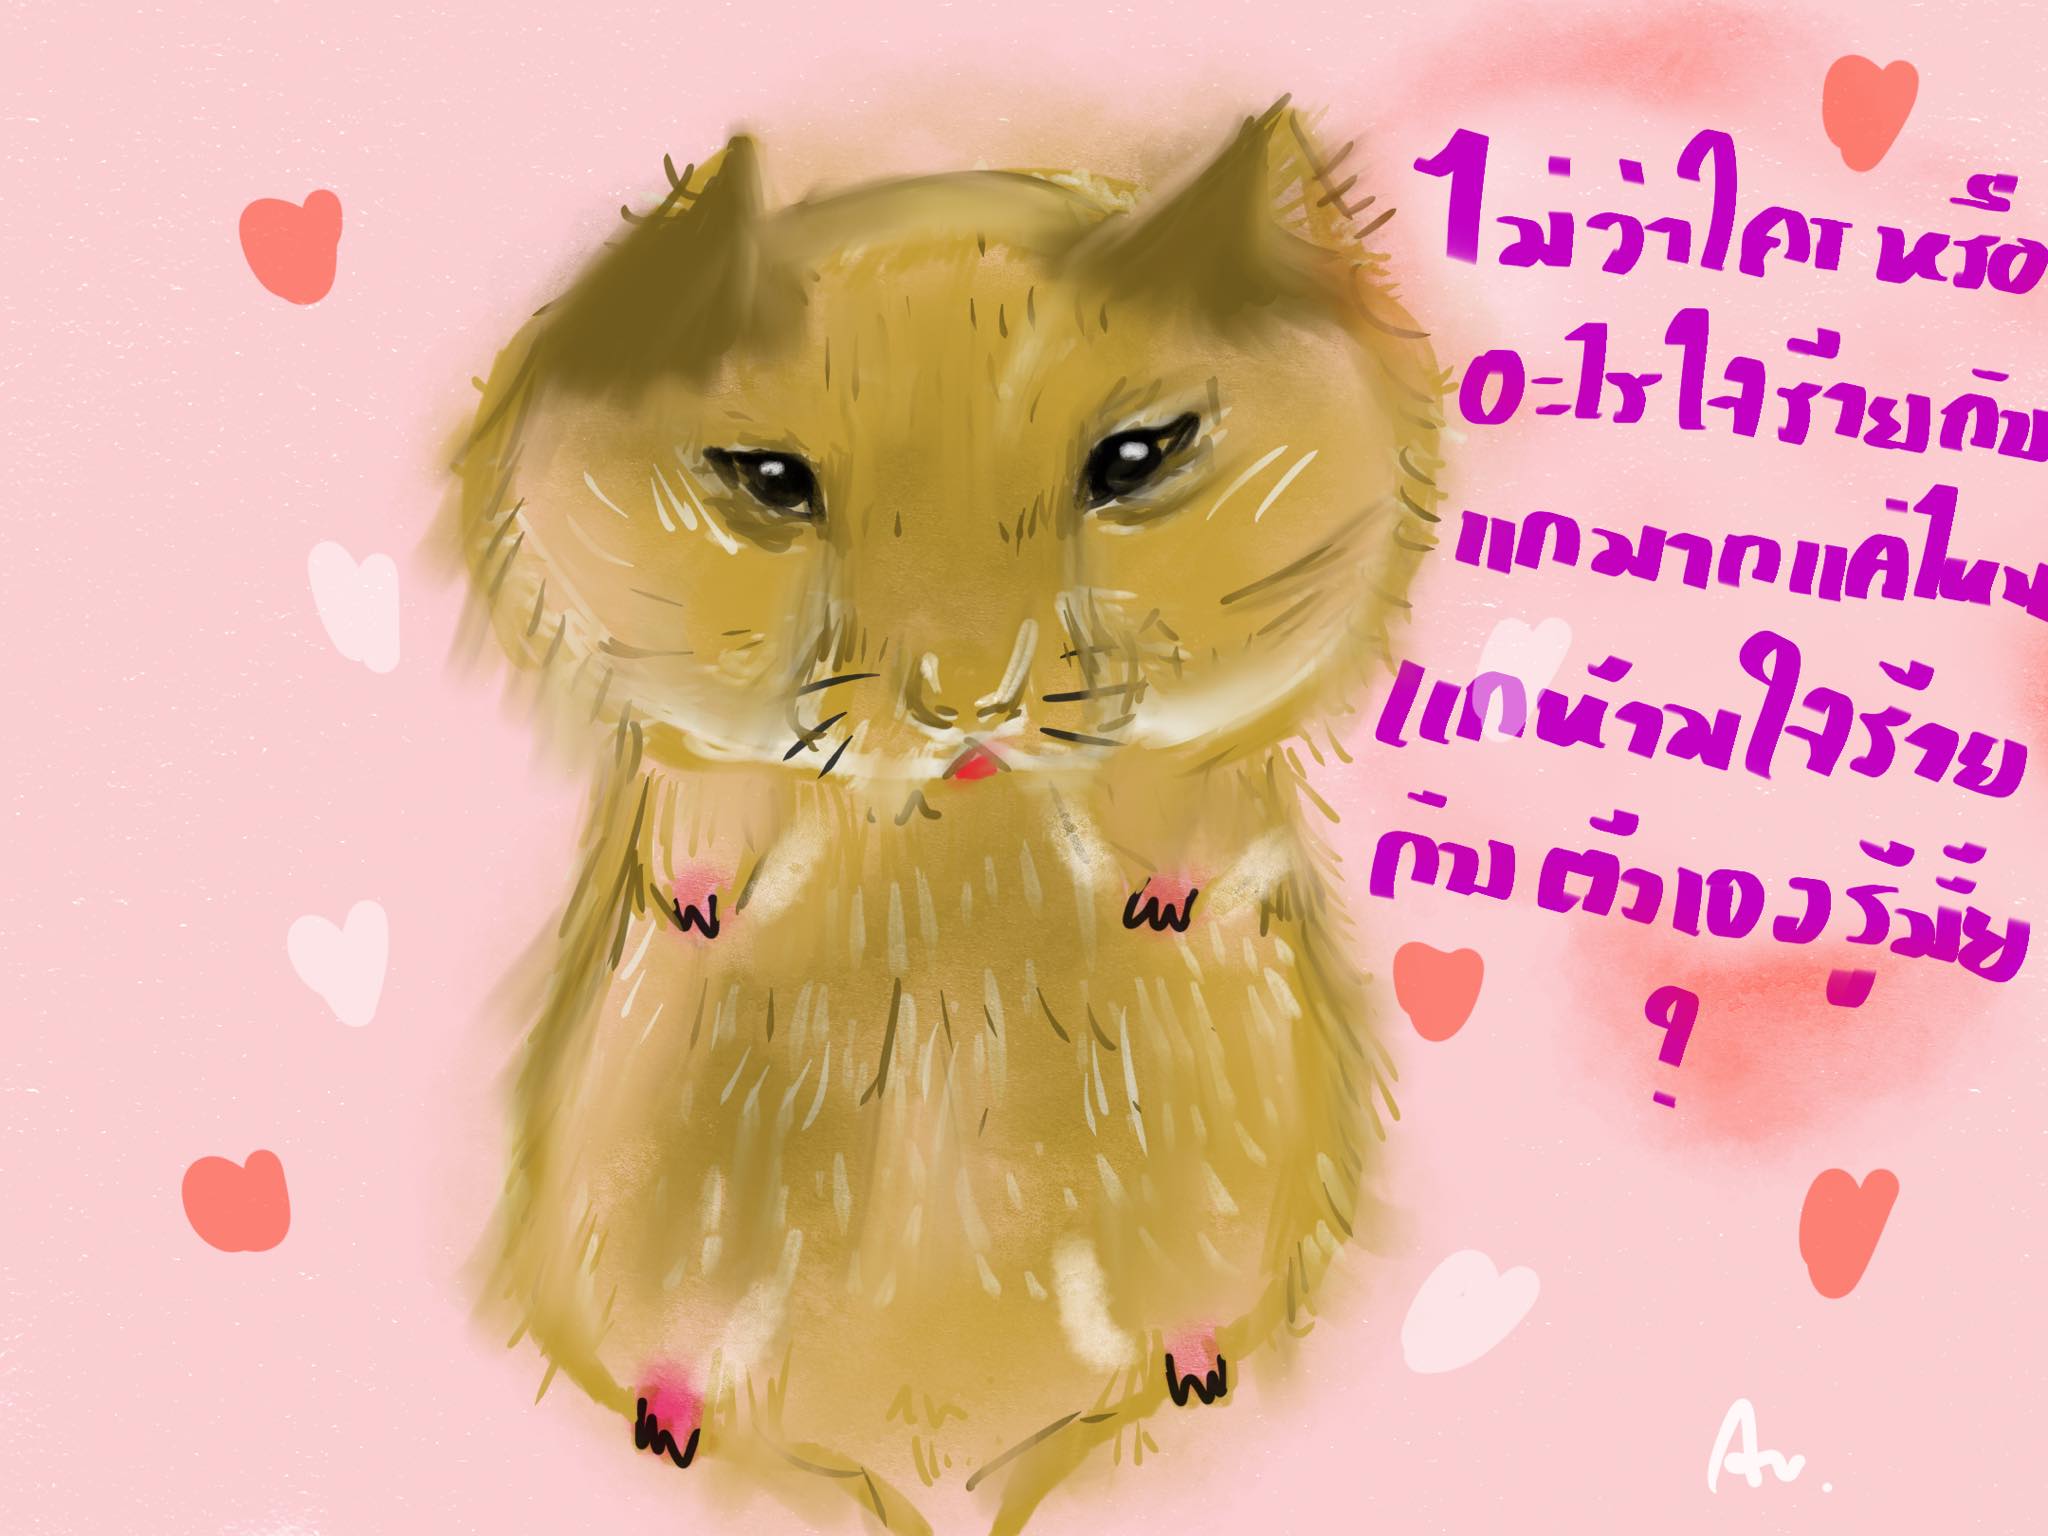 ไม่ว่าใคร หรือ
อะไร ใจร้ายกับ
แกมากแค่ไหน
แกห้ามใจร้าย
กับตัวเองรู้มั้ย
?
Av.